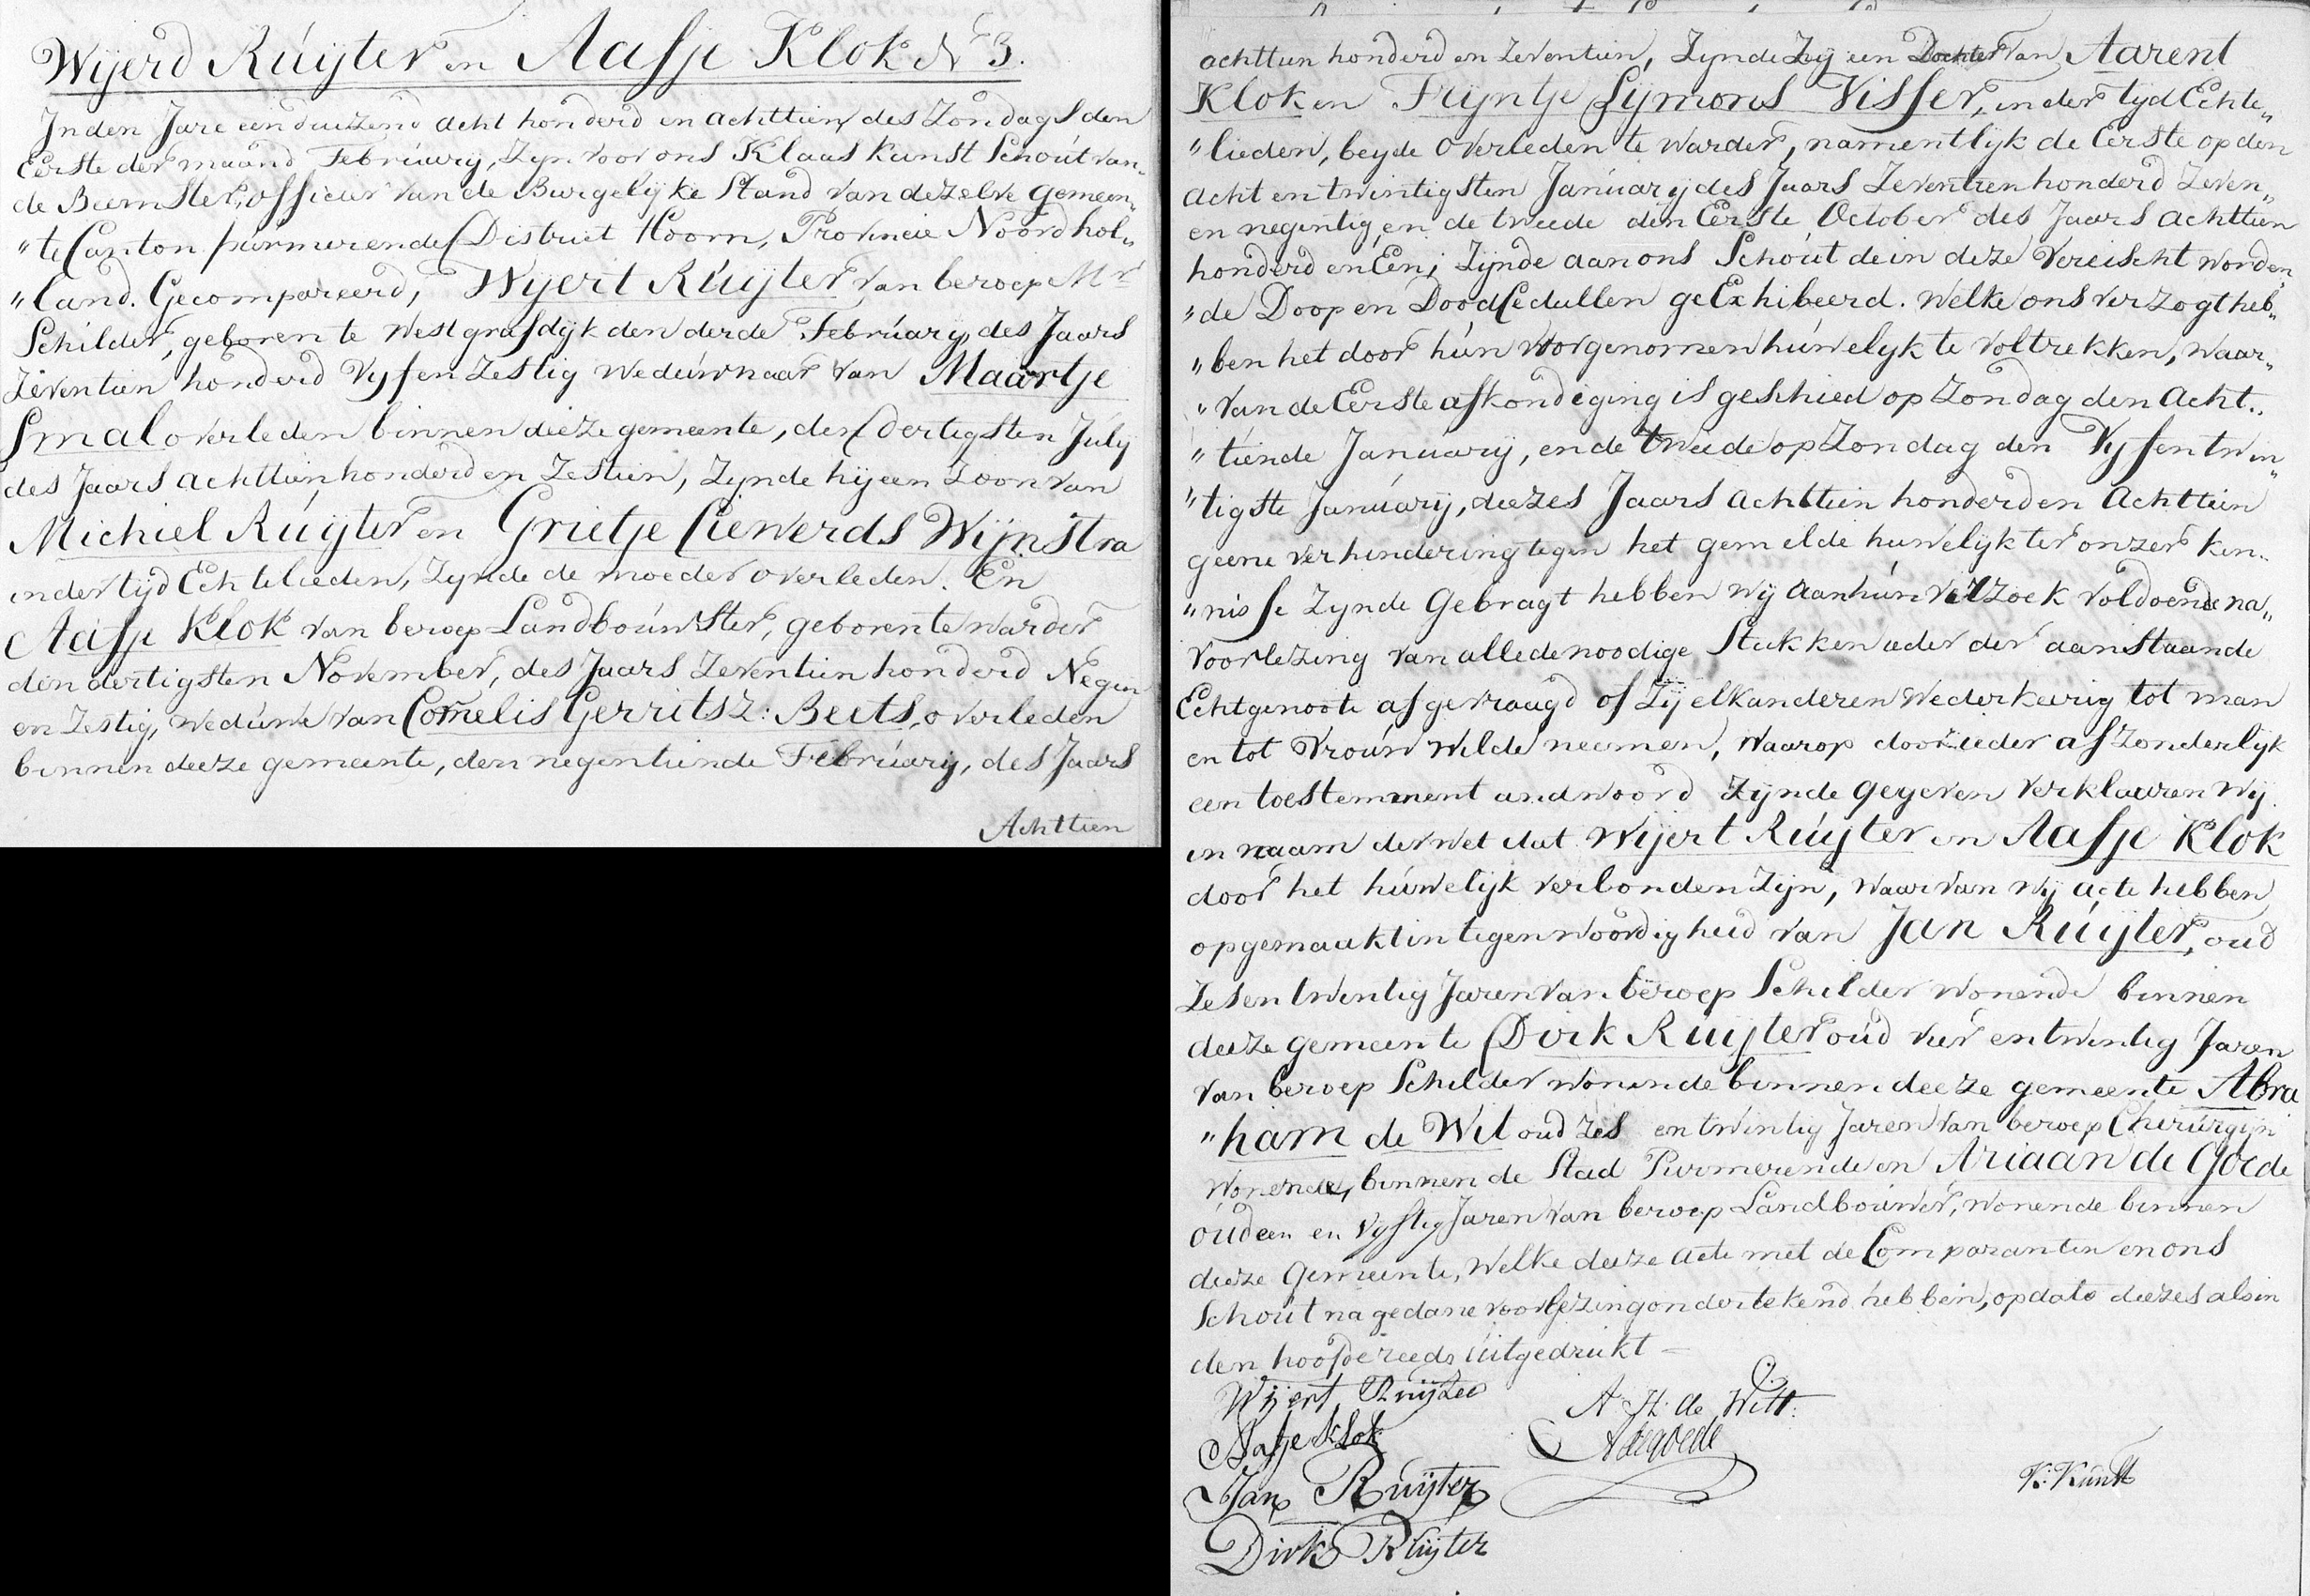 Wijerd Rúijter en Aafje Klok No 3.
Inden Jare een duizend acht honderd en achttien des Zondags den
Eerste der maand Februarij, Zijn voor ons Klaas Kunst Schoút van„
de Beemster, officier van de Burgelijke Stand van dezelve gemeen„
„te Canton púrmerende District Hoorn, Provincie Noordhol„
„land. Gecompareerd, Wijert Rúijter van beroep Mr
Schilder, geboren te Westgrafdijk den derde Februarij des Jaars
Zeventien honderd Vijf en Zestig Weduwnaar van Maartje
Smal overleden binnen deeze gemeente, den dertigsten Julij
des Jaars achttien honderd en Zestien, Zijnde hij een Zoon van
Michiel Rúijter en Grietje Siewerds Wijnstra
inder tijd Echtelieden, Zijnde de moeder overleden. En
Aafje Klok van beroep Landboúwster, geboren te Warder
den dertigsten November, des Jaars Zeventien honderd Negen
en Zestig, Weduwe van Cornelis Gerritsz: Beets, overleden
binnen deeze gemeente, den negentiende Februarij, des Jaars
Achttien
achttien honderd en Zeventien, Zijnde Zij een Dochter van Aarent
Klok en Trijntje Sijmons Visser, in der tijd Echte„
„lieden, beyde overleden te Warder, namentlijk de Eerste op den
acht en twintigsten Januarij des Jaars Zeventien honderd Zeven„
en negentig, en de tweede den Eerste October des Jaars achttien
honderd en Een; Zijnde aan ons Schoút de in deze Vereischt worden„
„de Doop en Dood Cedullen geExhibeerd. Welke ons verzogt heb„
„ben het door hún voorgenomen húwelijk te voltrekken, waar„
„van de Eerste afkondiging is geschied op Zondag den Acht„
„tiende Januarij, en de tweede op Zondag den Vijf en twin„
„tigste Januarij, deezes Jaars achttien honderd en achttien
geene verhindering tegen het gemelde huwelijk ter onzer ken„
„nisse Zijnde Gebragt hebben wij aan hún verzoek voldoende na„
voorlezing van alle de noodige Stukken ieder der aanstaande
Echtgenoote afgevraagd of Zij elkanderen Wederkeerig tot man
en tot Vroúw wilde neemen, waarop door ieder afzonderlijk
een toestemment andwoord Zijnde gegeven verklaaren Wij
in naam der wet dat Wijert Rúijter en Aafje Klok
door het húwelijk verbonden Zijn, waar van wij acte hebben
opgemaakt in tegenwoordigheid van Jan Rúijter, oud
Zes en twintig Jaren van beroep Schilder wonende binnen
deeze gemeente Dirk Ruijter oúd vier en twintig Jaren
van beroep Schilder wonende binnen deeze gemeente Abra
„ham de Wit oud Zes en twintig Jaren van beroep Chirúrgijn
wonende, binnen de Stad Purmerende en Ariaan de Goede
oúd een en Vijftig Jaren van beroep Landboúwer, wonende binnen
deeze Gemeente, welke deeze acte met de Comparanten en ons
Schoút na gedane voorlezing ondertekend hebben, op dato deezes als in
den hoofde reeds úitgedrukt
Wijert Ruijter
Aafje Klok
Jan Ruijter
Dirk Rúijter
A H. de Witt.
A de goede
K: Kunst